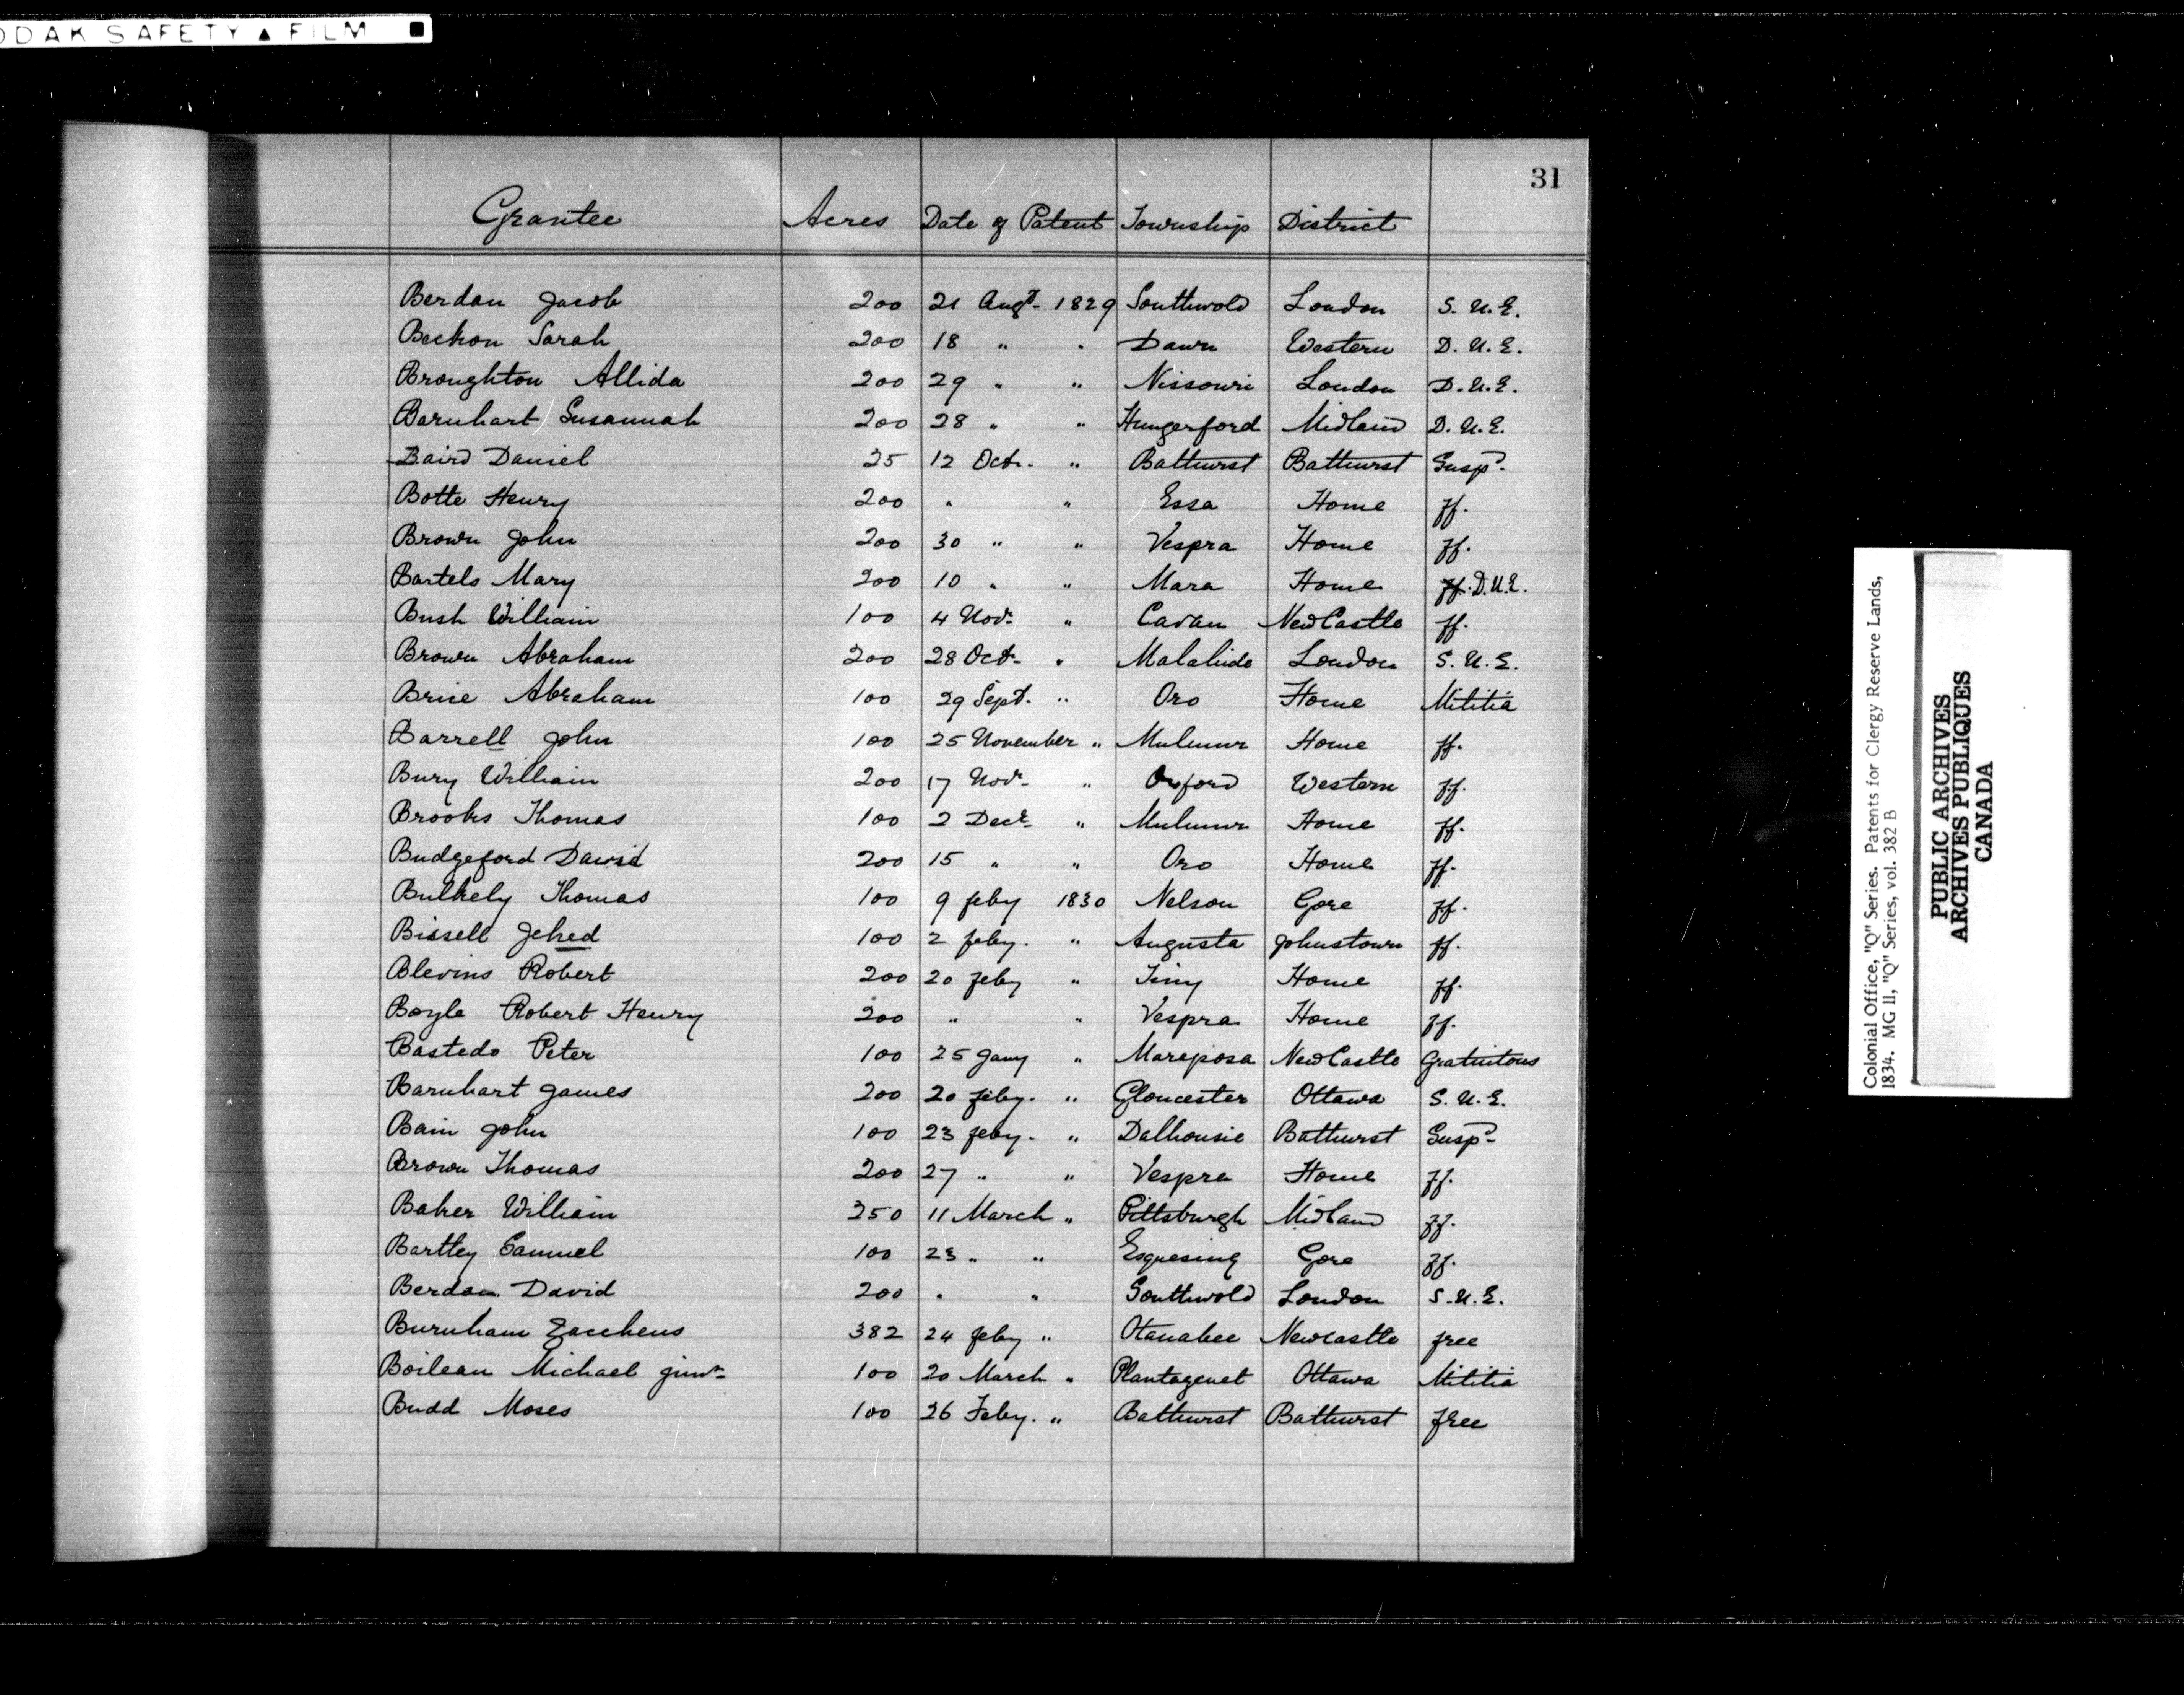 ODAK SAFETY ▲ FILM ■
31
Grantee Acres Date of Patent Township District
Berdan Jacob 200 21 Augt. 1829 Southwold London S. U. E.
Beckon Sarah 200 18 " " Dawn Western D. U. E.
Broughton Allida 200 29 " " Nissouri London D. U. E.
Barnhart Susannah 200 28 " " Hungerford Midland D. U. E.
Baird Daniel 25 12 Oct. " Bathurst Bathurst Susp.
Botte Henry 200 " " Essa Home ff.
Brown John 200 30 " " Vespra Home ff.
Bartels Mary 200 10 " " Mara Home ff. D.U.E.
Bush William 100 4 Novr. " Cavan NewCastle ff.
Brown Abraham 200 28 Oct. " Malahide London S. U. E.
Brise Abraham 100 29 Sept. " Oro Home Militia
Barrell John 100 25 November " Mulmur Home ff.
Bury William 200 17 Novr. " Orford Western ff.
Brooks Thomas 100 2 Decr. " Mulmur Home ff.
Budgeford David 200 15 " " Oro Home ff.
Bulkely Thomas 100 9 feby 1830 Nelson Gore ff.
Bissell Jehed 100 2 feby. " Augusta Johnstown ff.
Blevins Robert 200 20 feby " Tiny Home ff.
Boyle Robert Henry 200 " " Vespra Home ff.
Bastedo Peter 100 25 Jany " Mariposa NewCastle Gratuitous
Barnhart James 200 20 feby. " Gloucester Ottawa S. U. E.
Bain John 100 23 feby. " Dalhousie Bathurst Susp.
Brown Thomas 200 27 " " Vespra Home ff.
Baker William 250 11 March " Pittsburgh Midland ff.
Bartley Samuel 100 23 " " Esquesing Gore ff.
Berdan David 200 " " Southwold London S. U. E.
Burnham Zaccheus 382 24 feby " Otanabee Newcastle free
Boileau Michael junr. 100 20 March " Plantagenet Ottawa Militia
Budd Moses 100 26 Feby. " Bathurst Bathurst free
Colonial Office, "Q" Series. Patents for Clergy Reserve Lands,
1834. MG 11, "Q" Series, vol. 382 B
PUBLIC ARCHIVES
ARCHIVES PUBLIQUES
CANADA